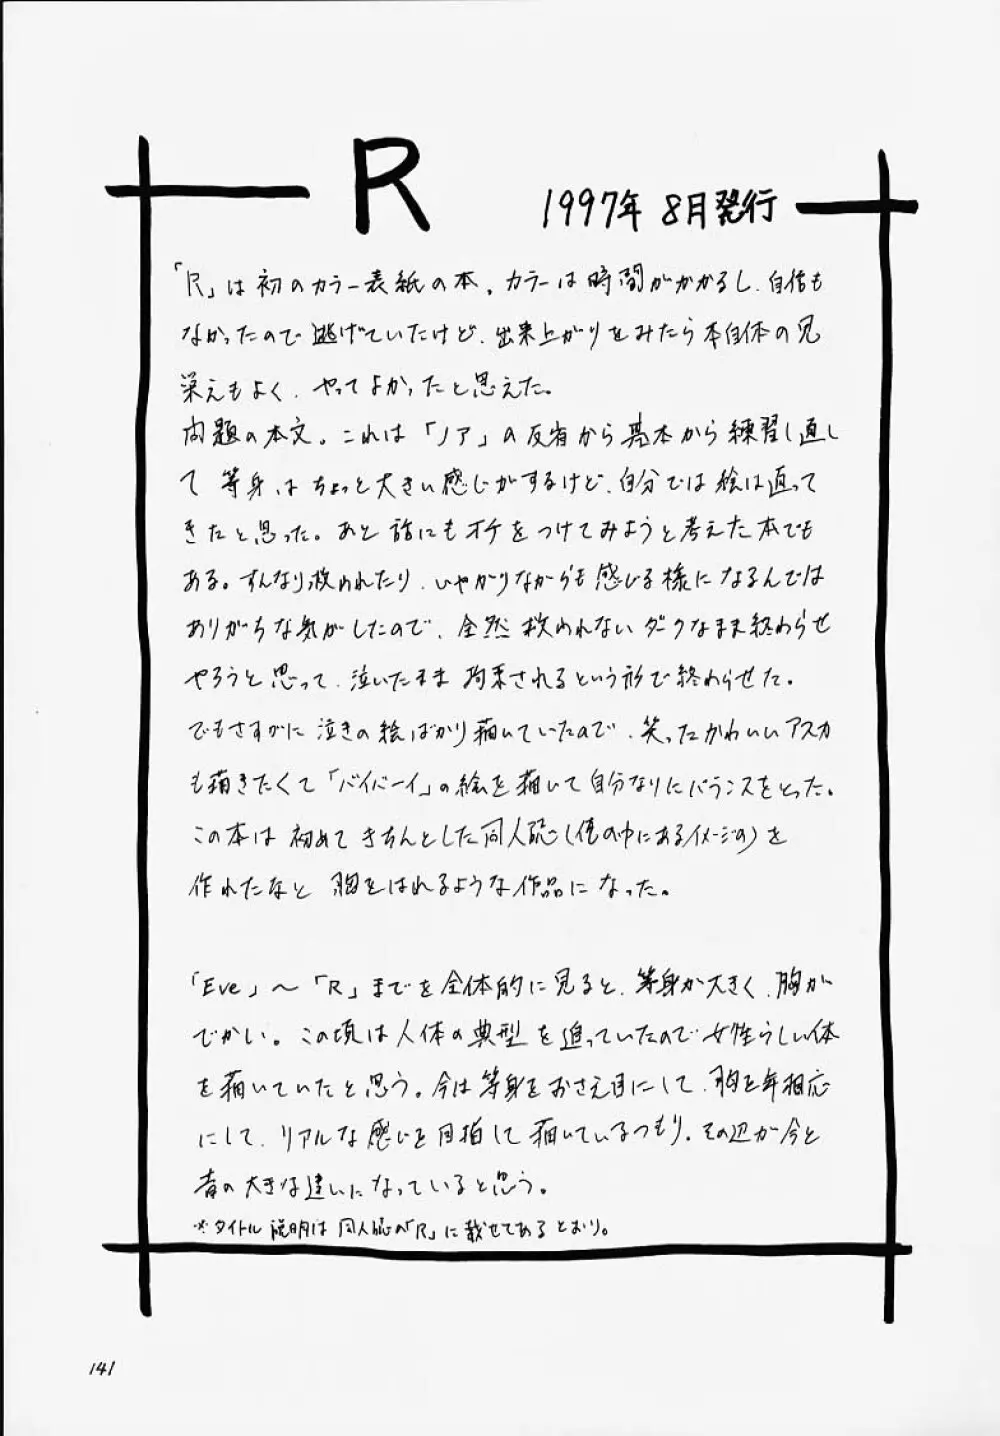 R
1997年 8月発行
「R」は初のカラー表紙の本。カラーは時間がかかるし、自信も
なかったので逃げていたけど、出来上がりをみたら本自体の見
栄えもよく、やってよかったと思えた。
問題の本文。これは「ノア」の反省から基本から練習し直し
て 等身はちょっと大きい感じがするけど、自分では絵は直って
きたと思った。あと 話にもオチをつけてみようと考えた本でも
ある。すんなり救われたり、いやがりながらも感じる様になるんでは
ありがちな気がしたので、全然救われないダークなまま終わらせ
やろうと思って、泣いたまま 拘束されるという形で終わらせた。
でもさすがに泣きの絵ばかり描いていたので、笑ったかわいいアスカ
も描きたくて「バイバーイ」の絵を描いて自分なりにバランスをとった。
この本は 初めて きちんとした同人誌(俺の中にあるイメージの)を
作れたなと 胸をはれるような作品になった。
「Eve」〜「R」までを全体的に見ると、等身が大きく、胸が
でかい。この頃は人体の典型を追っていたので女性らしい体
を描いていたと思う。今は等身をおさえ目にして、胸を年相応
にして、リアルな感じを目指して描いているつもり。その辺が今と
昔の大きな違いになっていると思う。
※タイトル説明は同人誌の「R」に載せてあるとおり。
141